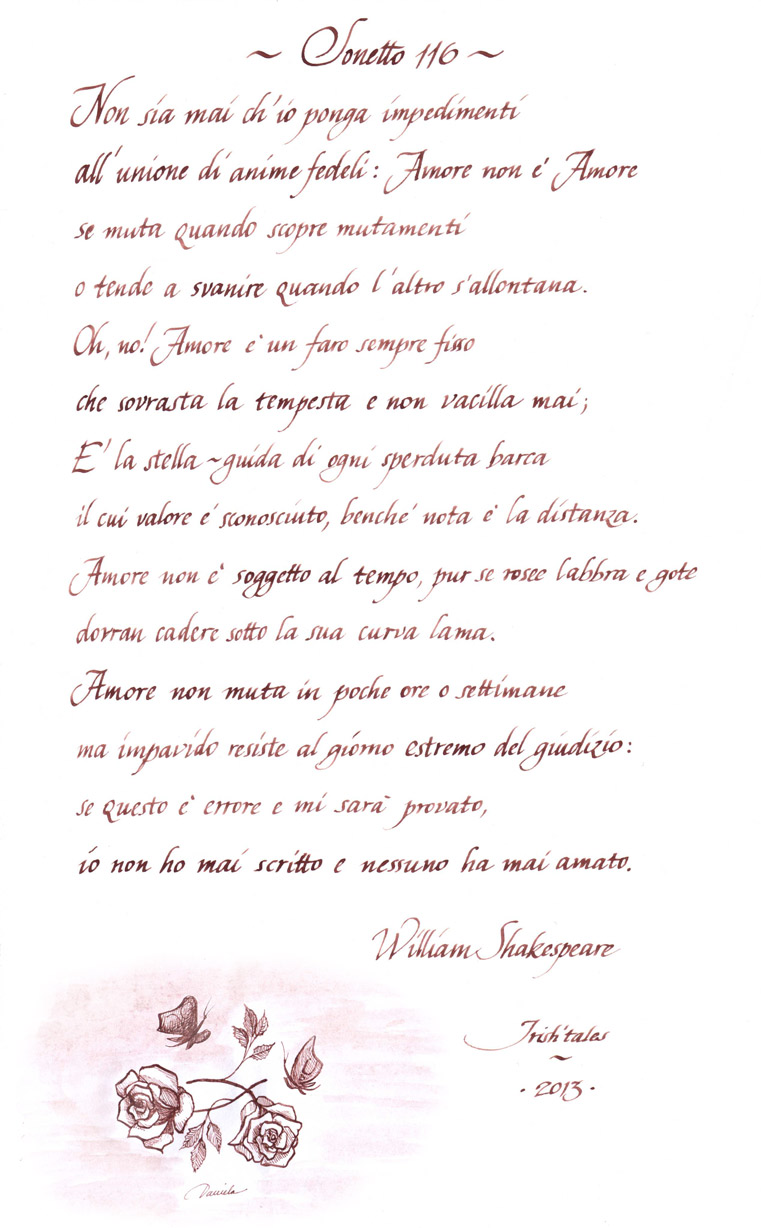 ~ Sonetto 116 ~
Non sia mai ch'io ponga impedimenti
all'unione di anime fedeli: Amore non e' Amore
se muta quando scopre mutamenti
o tende a svanire quando l'altro s'allontana.
Oh, no! Amore e' un faro sempre fisso
che sovrasta la tempesta e non vacilla mai;
E' la stella ~ guida di ogni sperduta barca
il cui valore e' sconosciuto, benche' nota e' la distanza.
Amore non e' soggetto al tempo, pur se rosee labbra e gote
dovran cadere sotto la sua curva lama.
Amore non muta in poche ore o settimane
ma impavido resiste al giorno estremo del giudizio:
se questo e' errore e mi sarà provato,
io non ho mai scritto e nessuno ha mai amato.
William Shakespeare
Irish'tales
~
· 2013 ·
Daniela